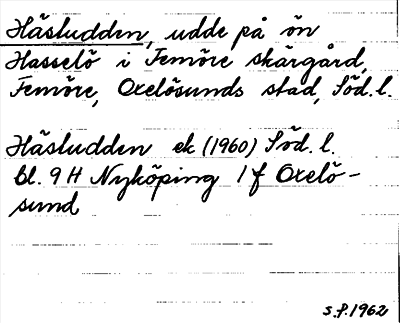 Hästudden, udde på ön
Hasselö i Femöre skärgård,
Femöre, Oxelösunds stad, Söd. l.
Hästudden ek (1960) Söd. l.
bl. 9 H Nyköping 1 f Oxelö-
sund
s.f. 1962